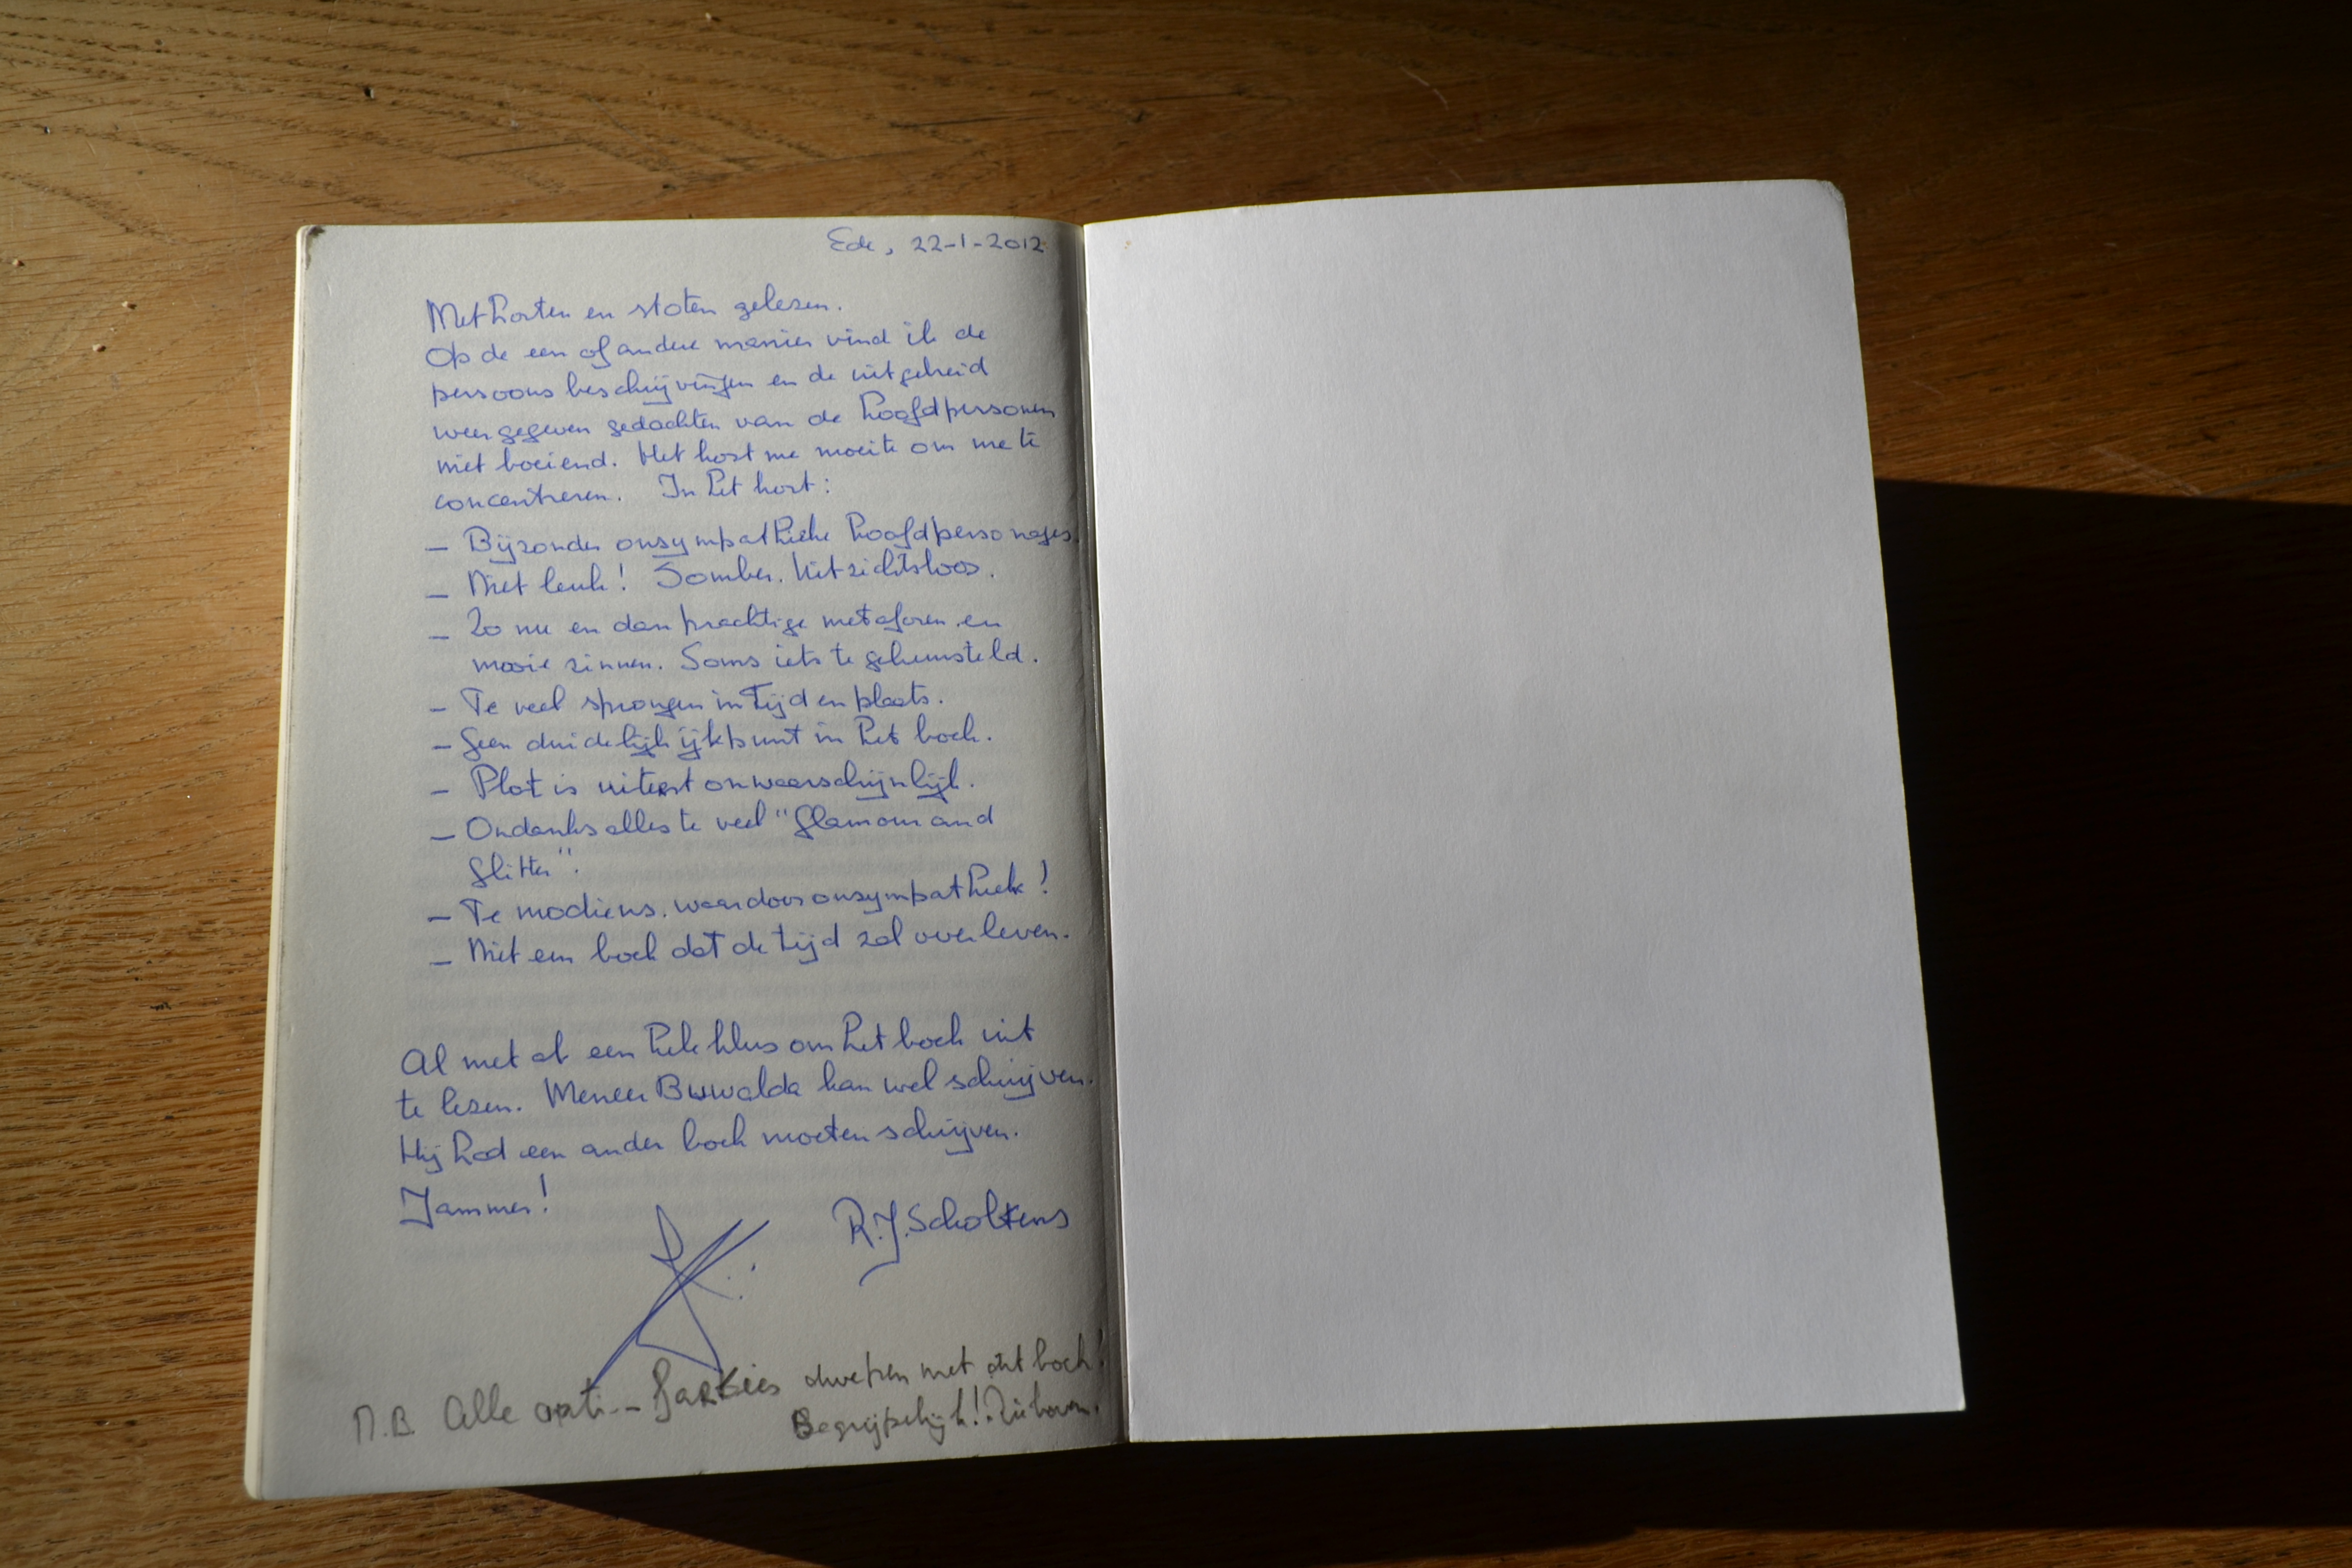 Ede, 22-1-2012
Met horten en stoten gelezen.
Op de een of andere manier vind ik de
persoons beschrijvingen en de uitgebreid
weergegeven gedachten van de hoofdpersonen
niet boeiend. Het kost me moeite om me te
concentreren. In het kort:
- Bijzonder onsympathieke hoofdpersonages.
- Niet leuk! Somber. Uitzichtsloos.
- Zo nu en dan prachtige metaforen en
mooie zinnen. Soms iets te gekunsteld.
- Te veel sprongen in tijd en plaats.
- Geen duidelijk ijkpunt in het boek.
- Plot is uiterst onwaarschijnlijk.
- Ondanks alles te veel "Glamour and
Glitter".
- Te modieus. waardoor onsympathiek!
- Niet een boek dat de tijd zal overleven.
Al met al een hele klus om het boek uit
te lezen. Meneer Buwalda kan wel schrijven.
Hij had een ander boek moeten schrijven.
Jammer!
R.J. Scholtens
N.B. Alle dwepen met dit boek!
Begrijpelijk! Zie boven.